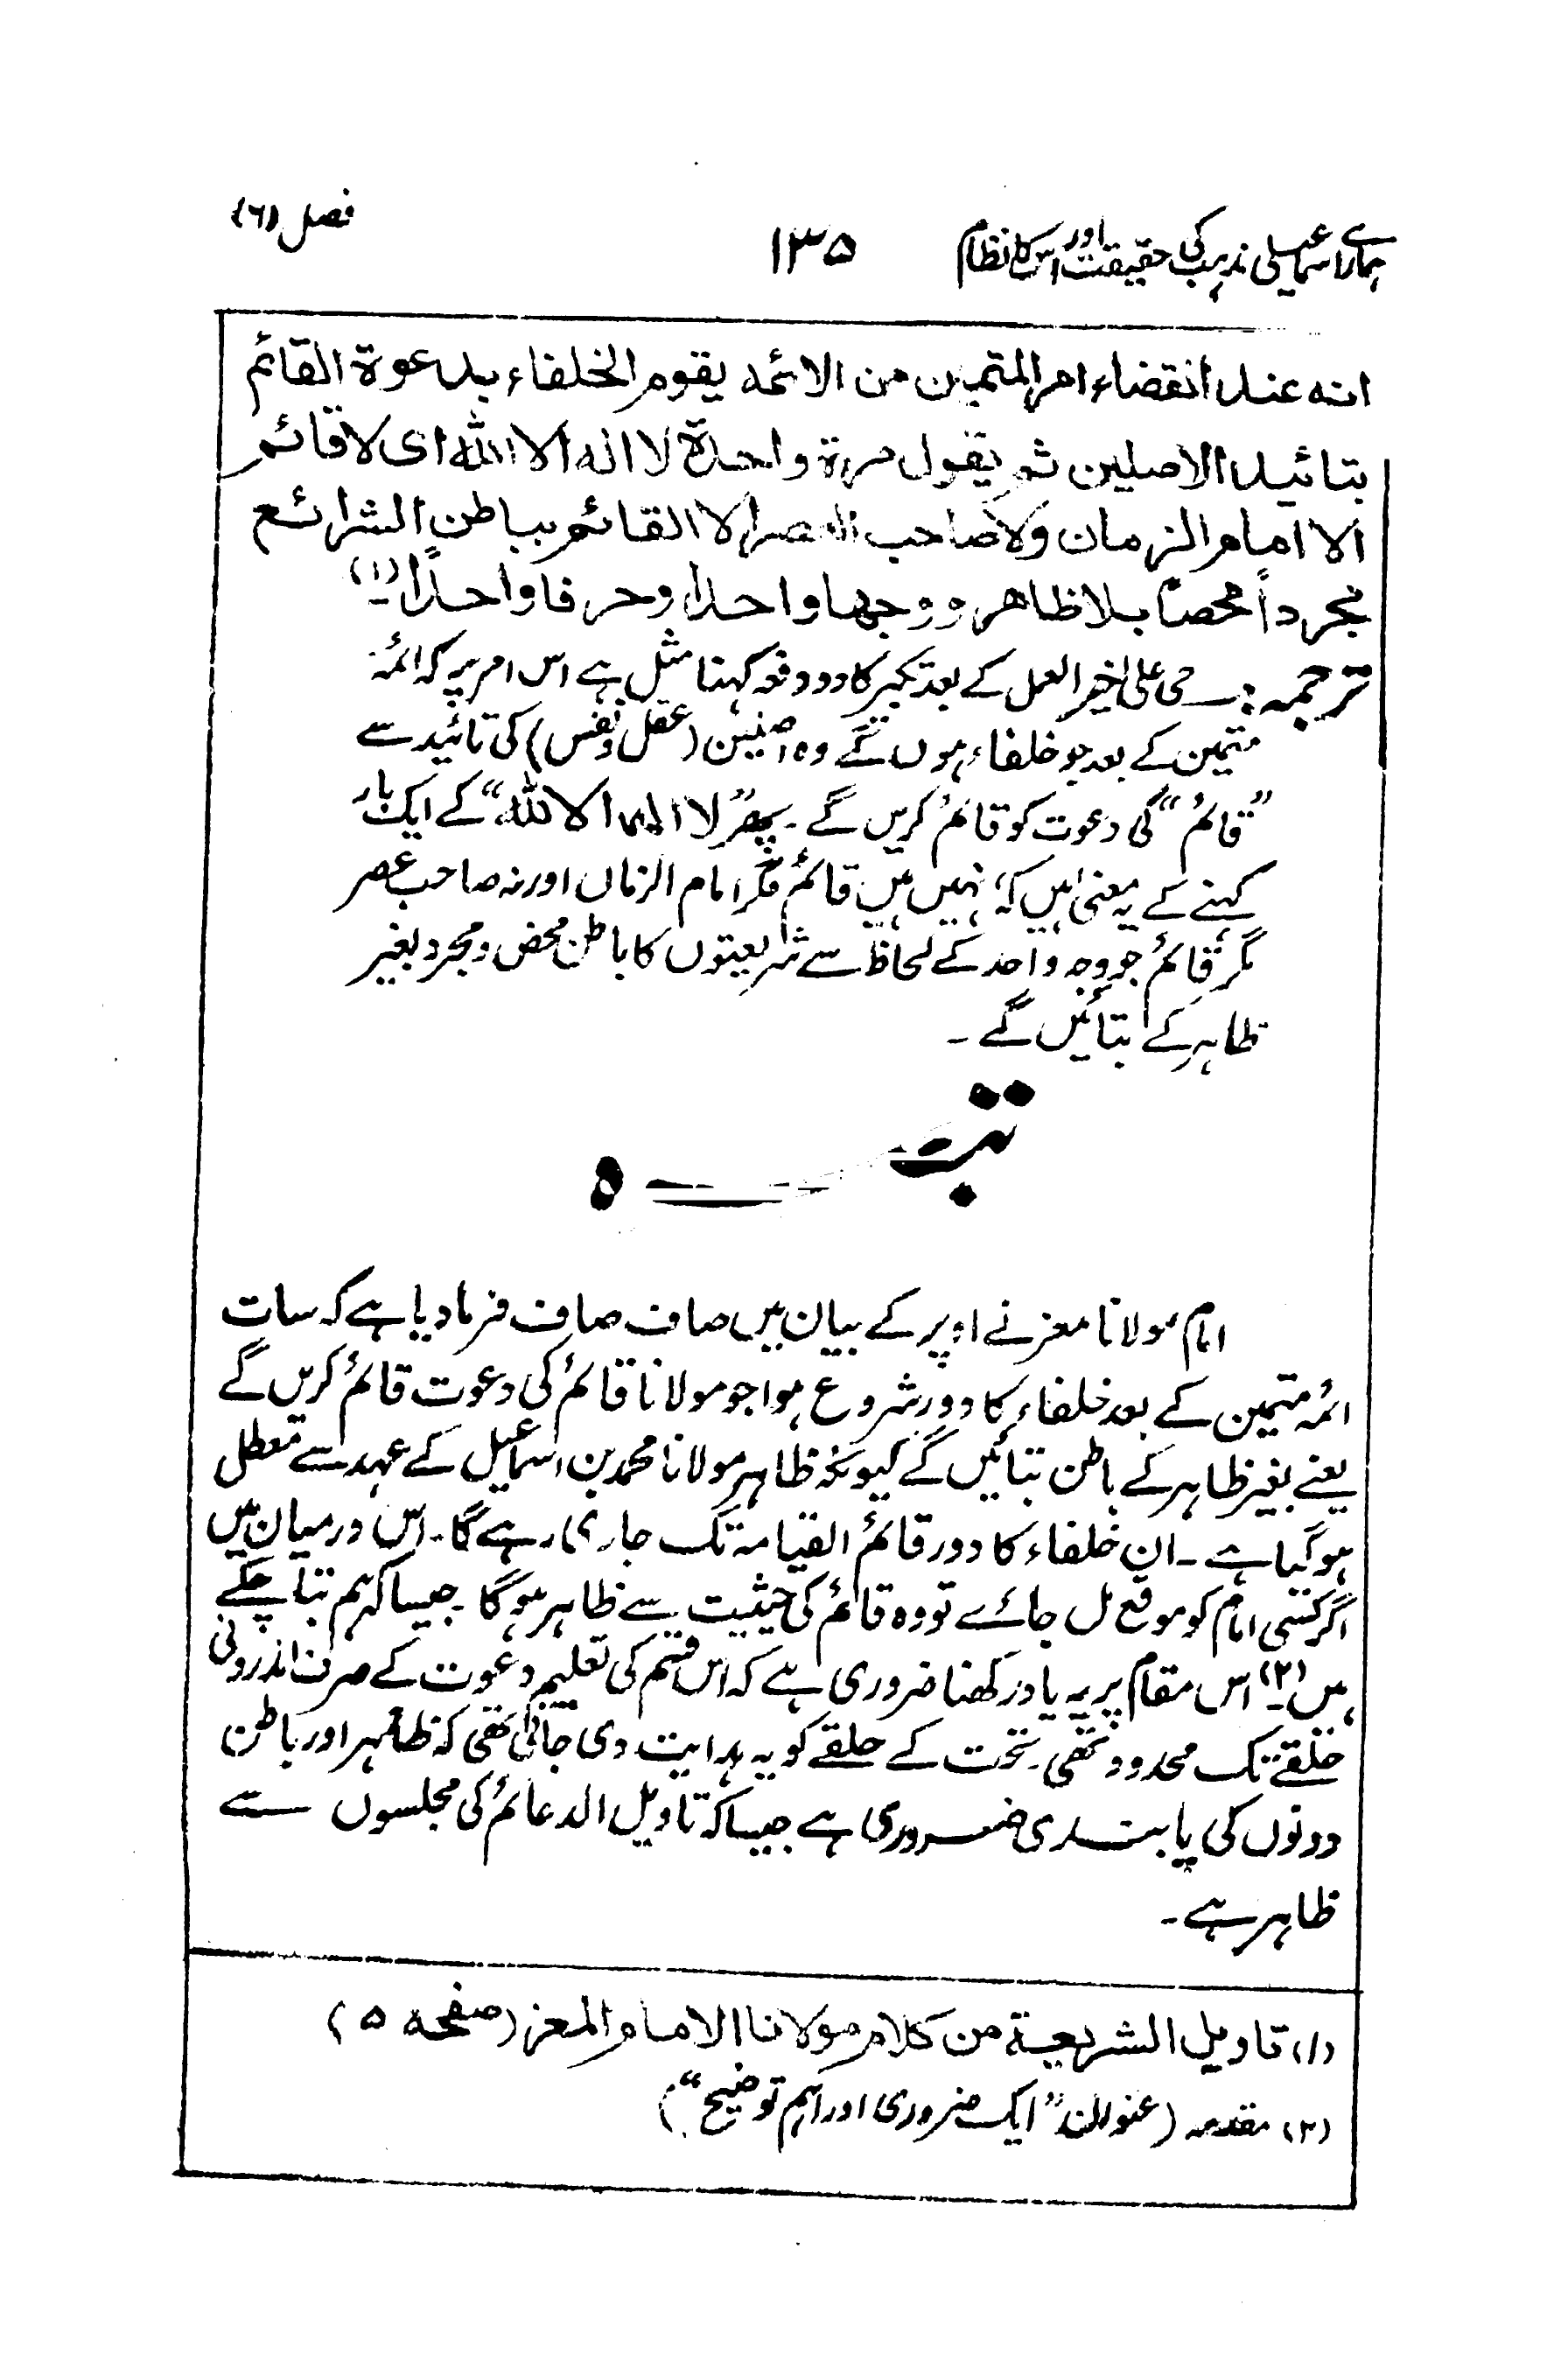 ہمارے اسماعیلی مذہب کی حقیقت اور اس کا نظام ۱۳۵ فصل (۶)
انه عند انقضاء امر المتمين من الائمه يقوم الخلفاء بدعوة القائم
بتائيد الاصلين ثم يقول مرة واحدة لا اله الا الله اى لا قائم
الا امام الزمان ولا صاحب العصر الا القائم بباطن الشرائع
مجرداً محضاً بلا ظاهر ووجها واحدا وحرفا واحداً (۱)
ترجمہ :۔ حی علیٰ خیر العمل کے بعد تکبیر کا دو دفعہ کہنا مثل ہے اس امر پر کہ ائمہ
متمین کے بعد جو خلفاء ہوں گے وہ اصلین (عقل و نفس) کی تائید سے
”قائم“ کی دعوت کو قائم کریں گے ۔ پھر ”لا الہ الا اللہ“ کے ایک بار
کہنے کے یہ معنیٰ ہیں کہ نہیں ہیں قائم مگر امام الزماں اور نہ صاحب عصر
مگر قائم جو وجہ واحد کے لحاظ سے شریعتوں کا باطن محض و مجرد بغیر
ظاہر کے بتائیں گے ۔
تبصرہ
امام مولانا معز نے اوپر کے بیان میں صاف صاف فرما دیا ہے کہ سات
ائمہ متمین کے بعد خلفاء کا دور شروع ہوا جو مولانا قائم کی دعوت قائم کریں گے
یعنے بغیر ظاہر کے باطن بتائیں گے کیونکہ ظاہر مولانا محمد بن اسماعیل کے عہد سے معطل
ہو گیا ہے ۔ ان خلفاء کا دور قائم القیامہ تک جاری رہے گا ۔ اس درمیان میں
اگر کسی امام کو موقع مل جائے تو وہ قائم کی حیثیت سے ظاہر ہو گا ۔ جیسا کہ ہم بتا چکے
ہیں (۲)۔ اس مقام پر یہ یاد رکھنا ضروری ہے کہ اس قسم کی تعلیم دعوت کے صرف اندرونی
حلقے تک محدود تھی ۔ تحت کے حلقے کو یہ ہدایت دی جاتی تھی کہ ظاہر اور باطن
دونوں کی پابندی ضروری ہے جیسا کہ تاویل الدعائم کی مجلسوں سے
ظاہر ہے ۔
(۱) تاويل الشريعة من كلام مولانا الامام المعز (صفحه ۵)
(۲) مقدمہ (عنوان ”ایک ضروری اور اہم توضیح“)